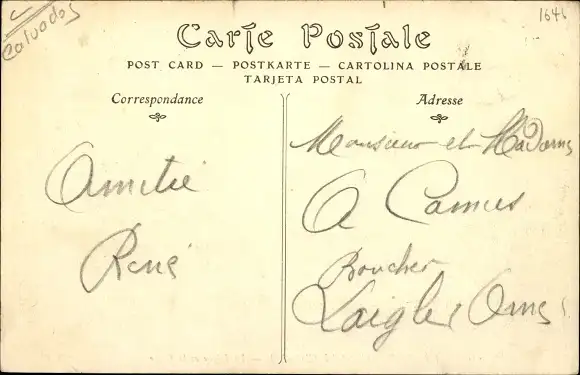 Calvados
1646
Carte Postale
POST CARD — POSTKARTE — CARTOLINA POSTALE
TARJETA POSTAL
Correspondance
Amitié
René
Adresse
Monsieur et Madame
A Camus
Boucher
Laigle Orne